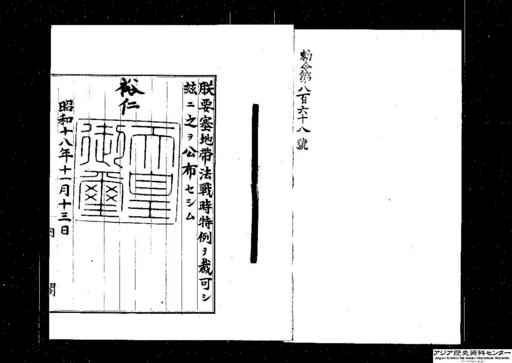 勅令第八百六十八號
朕要塞地帶法戰時特例ヲ裁可シ
玆ニ之ヲ公布セシム
裕仁
天皇御璽
昭和十八年十一月十三日
内閣
アジア歴史資料センター
Japan Center for Asian Historical Records